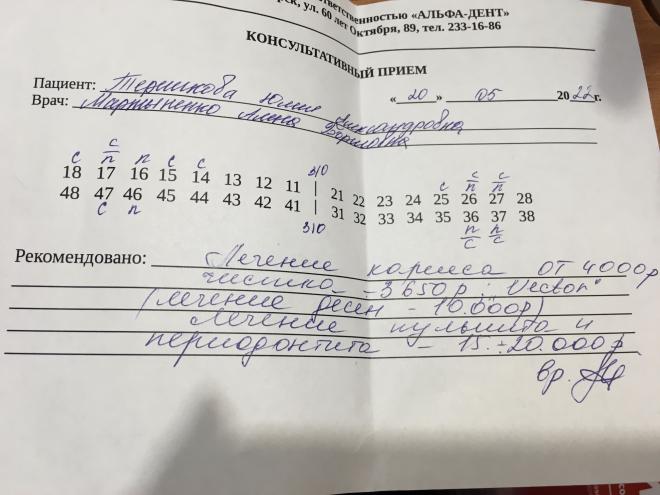 ответственностью «АЛЬФА-ДЕНТ»
рск, ул. 60 лет Октября, 89, тел. 233-16-86
КОНСУЛЬТАТИВНЫЙ ПРИЕМ
Пациент: Терешкова Юлия Александровна
«20» 05 2022г.
Врач: Мартыненко Алена Борисовна
с
с п с с з/о с с
п п п
18 17 16 15 14 13 12 11 | 21 22 23 24 25 26 27 28
48 47 46 45 44 43 42 41 | 31 32 33 34 35 36 37 38
с п з/о п п
с с
Рекомендовано: Лечение кариеса от 4000р
чистка - 3650р; "Vector"
(лечение десен - 10.000р)
Лечение пульпита и
периодонтита - 15.÷20.000р
вр.